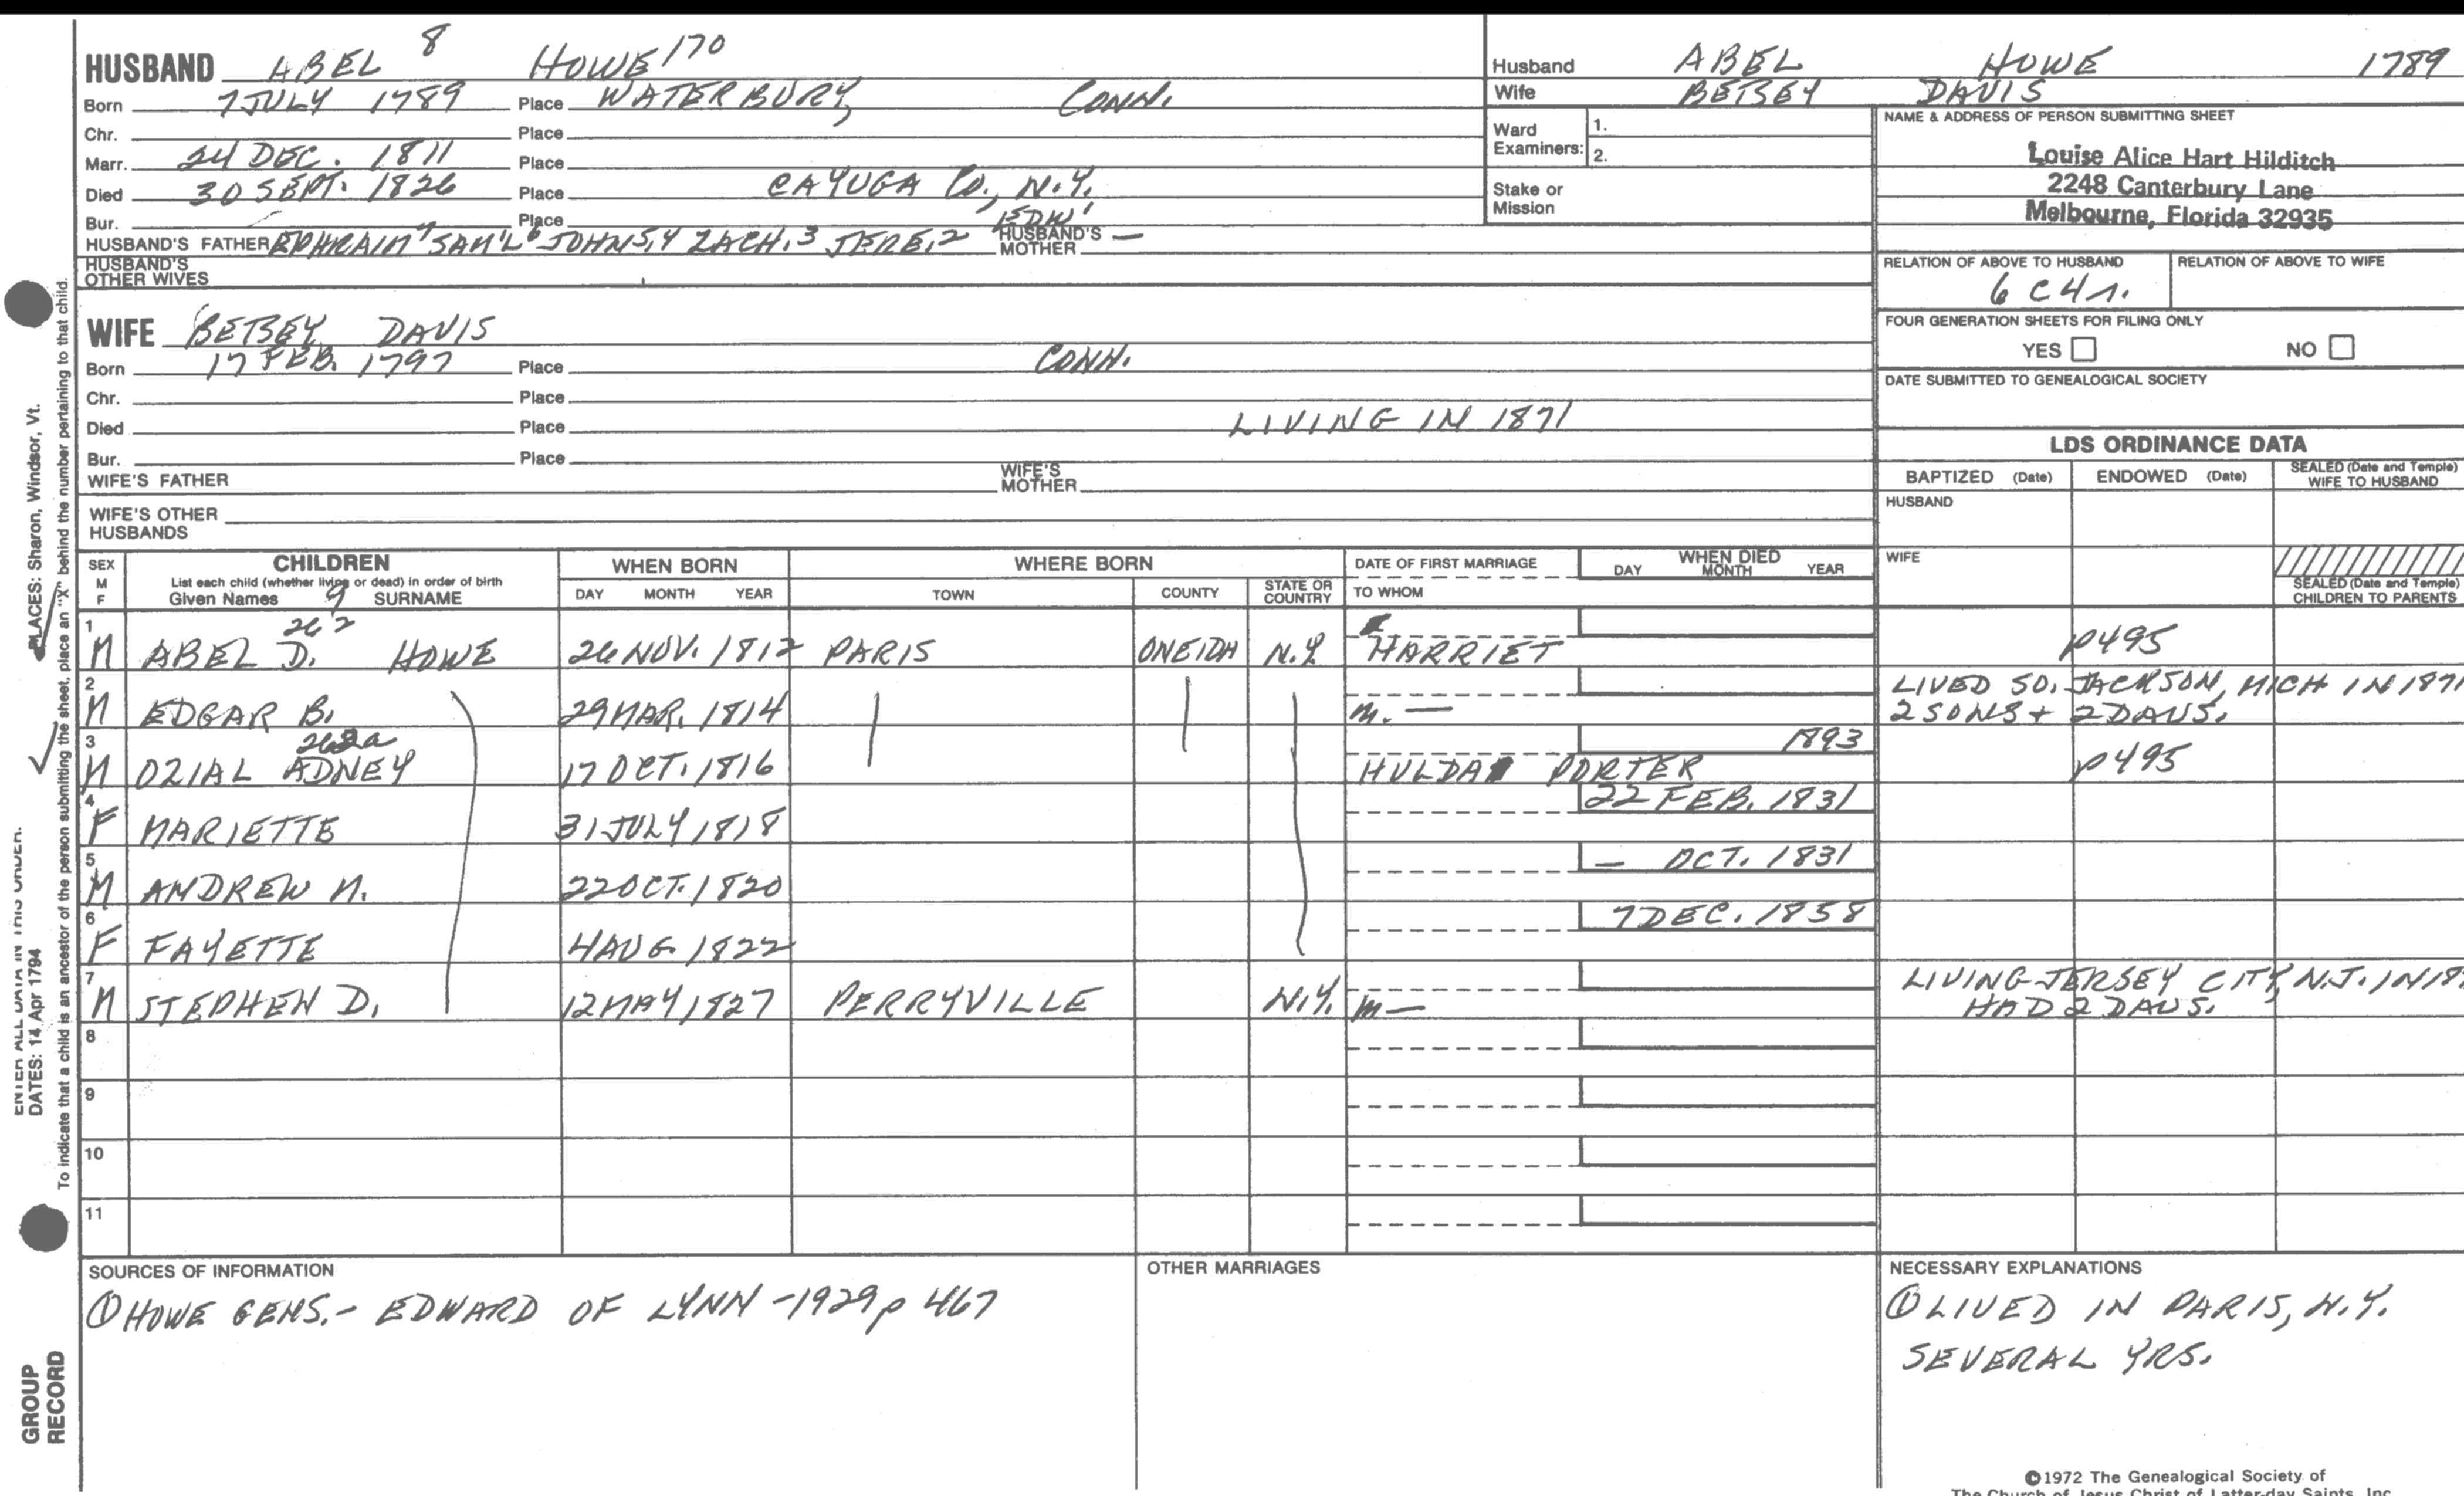 HUSBAND ABEL 8 HOWE 170
Born 7 JULY 1789 Place WATERBURY, CONN.
Chr. Place
Marr. 24 DEC. 1811 Place
Died 30 SEPT. 1826 Place CAYUGA Co., N.Y.
Bur. Place
HUSBAND'S FATHER EPHRAIM 7 SAM'L 6 JOHN 5,4 ZACH. 3 JERE. 2 EDW 1 HUSBAND'S MOTHER —
HUSBAND'S OTHER WIVES
WIFE BETSEY DAVIS
Born 17 FEB. 1797 Place CONN.
Chr. Place
Died Place LIVING IN 1871
Bur. Place
WIFE'S FATHER WIFE'S MOTHER
WIFE'S OTHER HUSBANDS
Husband ABEL HOWE 1789
Wife BETSEY DAVIS
Ward Examiners: 1.
2.
Stake or Mission
NAME & ADDRESS OF PERSON SUBMITTING SHEET
Louise Alice Hart Hilditch
2248 Canterbury Lane
Melbourne, Florida 32935
RELATION OF ABOVE TO HUSBAND RELATION OF ABOVE TO WIFE
6 C 4 r.
FOUR GENERATION SHEETS FOR FILING ONLY
YES NO
DATE SUBMITTED TO GENEALOGICAL SOCIETY
LDS ORDINANCE DATA
BAPTIZED (Date) ENDOWED (Date) SEALED (Date and Temple) WIFE TO HUSBAND
HUSBAND
WIFE
SEALED (Date and Temple) CHILDREN TO PARENTS
SEX M F CHILDREN WHEN BORN WHERE BORN DATE OF FIRST MARRIAGE WHEN DIED
List each child (whether living or dead) in order of birth
Given Names 9 SURNAME DAY MONTH YEAR TOWN COUNTY STATE OR COUNTRY TO WHOM DAY MONTH YEAR
262
1 M ABEL D. HOWE 26 NOV. 1812 PARIS ONEIDA N.Y. HARRIET p495
2 M EDGAR B. 29 MAR. 1814 m. — LIVED SO. JACKSON, MICH IN 1871
2 SONS + 2 DAUS.
262a 1893
3 M OZIAL ADNEY 17 OCT. 1816 HULDA PORTER p495
22 FEB. 1831
4 F MARIETTE 31 JULY 1818
— OCT. 1831
5 M ANDREW M. 22 OCT. 1820
7 DEC. 1858
6 F FAYETTE 4 AUG 1822
7 M STEPHEN D. 12 MAY 1827 PERRYVILLE N.Y. m — LIVING JERSEY CITY, N.J. IN 18
HAD 2 DAUS.
8
9
10
11
SOURCES OF INFORMATION
① HOWE GENS. - EDWARD OF LYNN - 1929 p 467
OTHER MARRIAGES
NECESSARY EXPLANATIONS
① LIVED IN PARIS, N.Y.
SEVERAL YRS.
©1972 The Genealogical Society of
The Church of Jesus Christ of Latter-day Saints, Inc.
ENTER ALL DATA IN THIS ORDER:
DATES: 14 Apr 1794
PLACES: Sharon, Windsor, Vt.
To indicate that a child is an ancestor of the person submitting the sheet, place an "X" behind the number pertaining to that child.
GROUP RECORD